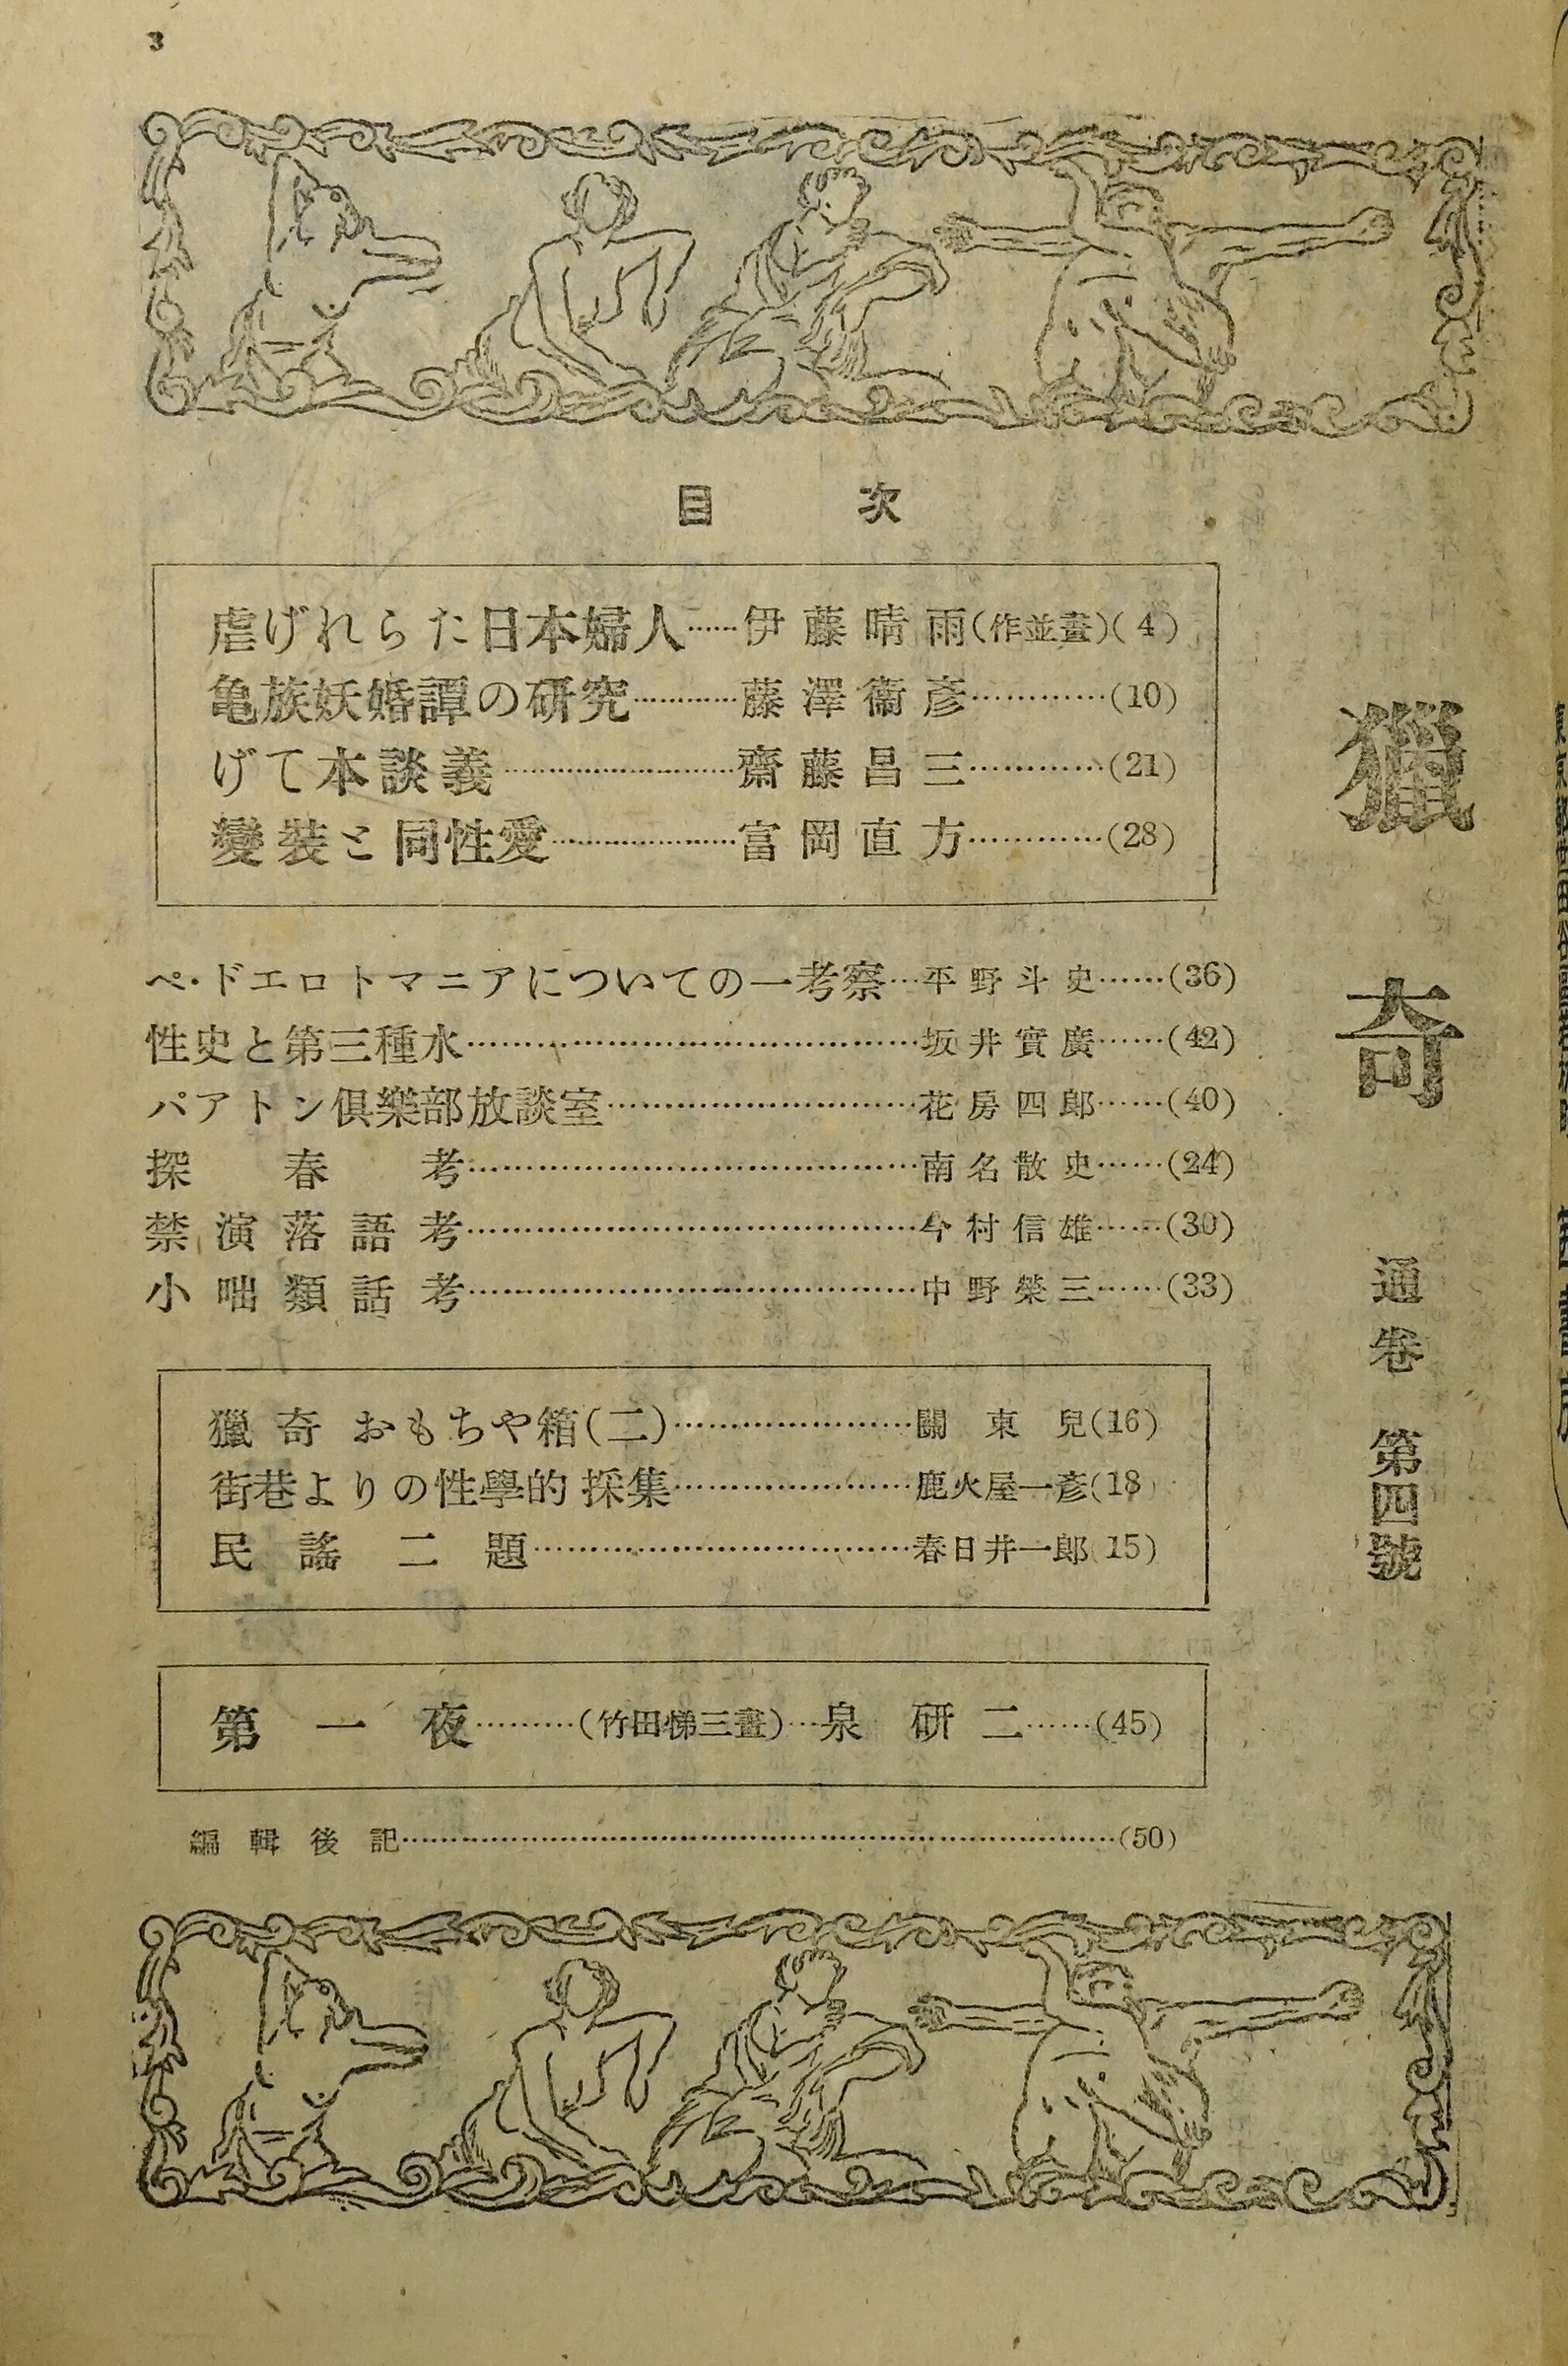 3
目次
虐げれらた日本婦人……伊藤晴雨(作並畫)(4)
亀族妖婚譚の研究…………藤澤衞彥…………(10)
げて本談義…………………齋藤昌三…………(21)
變裝と同性愛………………富岡直方…………(28)
ペ・ドエロトマニアについての一考察…平野斗史……(36)
性史と第三種水………………………………坂井實廣……(42)
パアトン倶樂部放談室……………………花房四郎……(40)
探春考………………………………南名散史……(24)
禁演落語考………………………………今村信雄……(30)
小咄類話考………………………………中野榮三……(33)
獵奇おもちや箱(二)…………………關東兒(16)
街巷よりの性學的採集…………………鹿火屋一彥(18
民謠二題……………………………春日井一郎(15)
第一夜………(竹田悌三畫)…泉研二……(45)
編輯後記……………………………………………………(50)
獵奇
通卷第四號